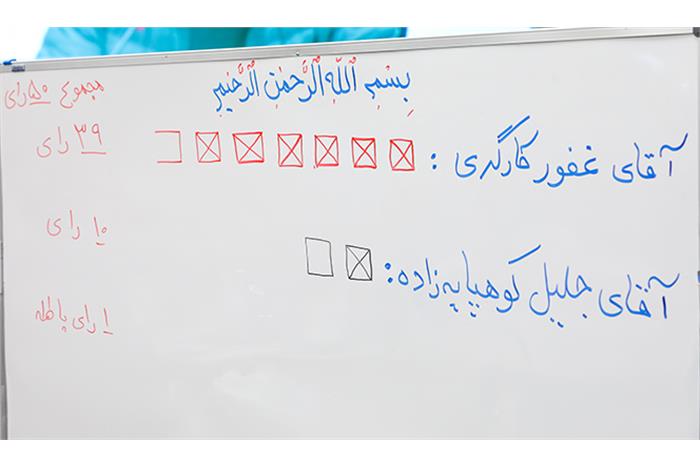 بِسْمِ اللّٰهِ الرَّحْمٰنِ الرَّحیمِ
مجموع ۵۰ رای
آقای غفور کارگری :
۳۹ رای
آقای جلیل کوهپایه زاده :
۱۰ رای
۱ رای باطله